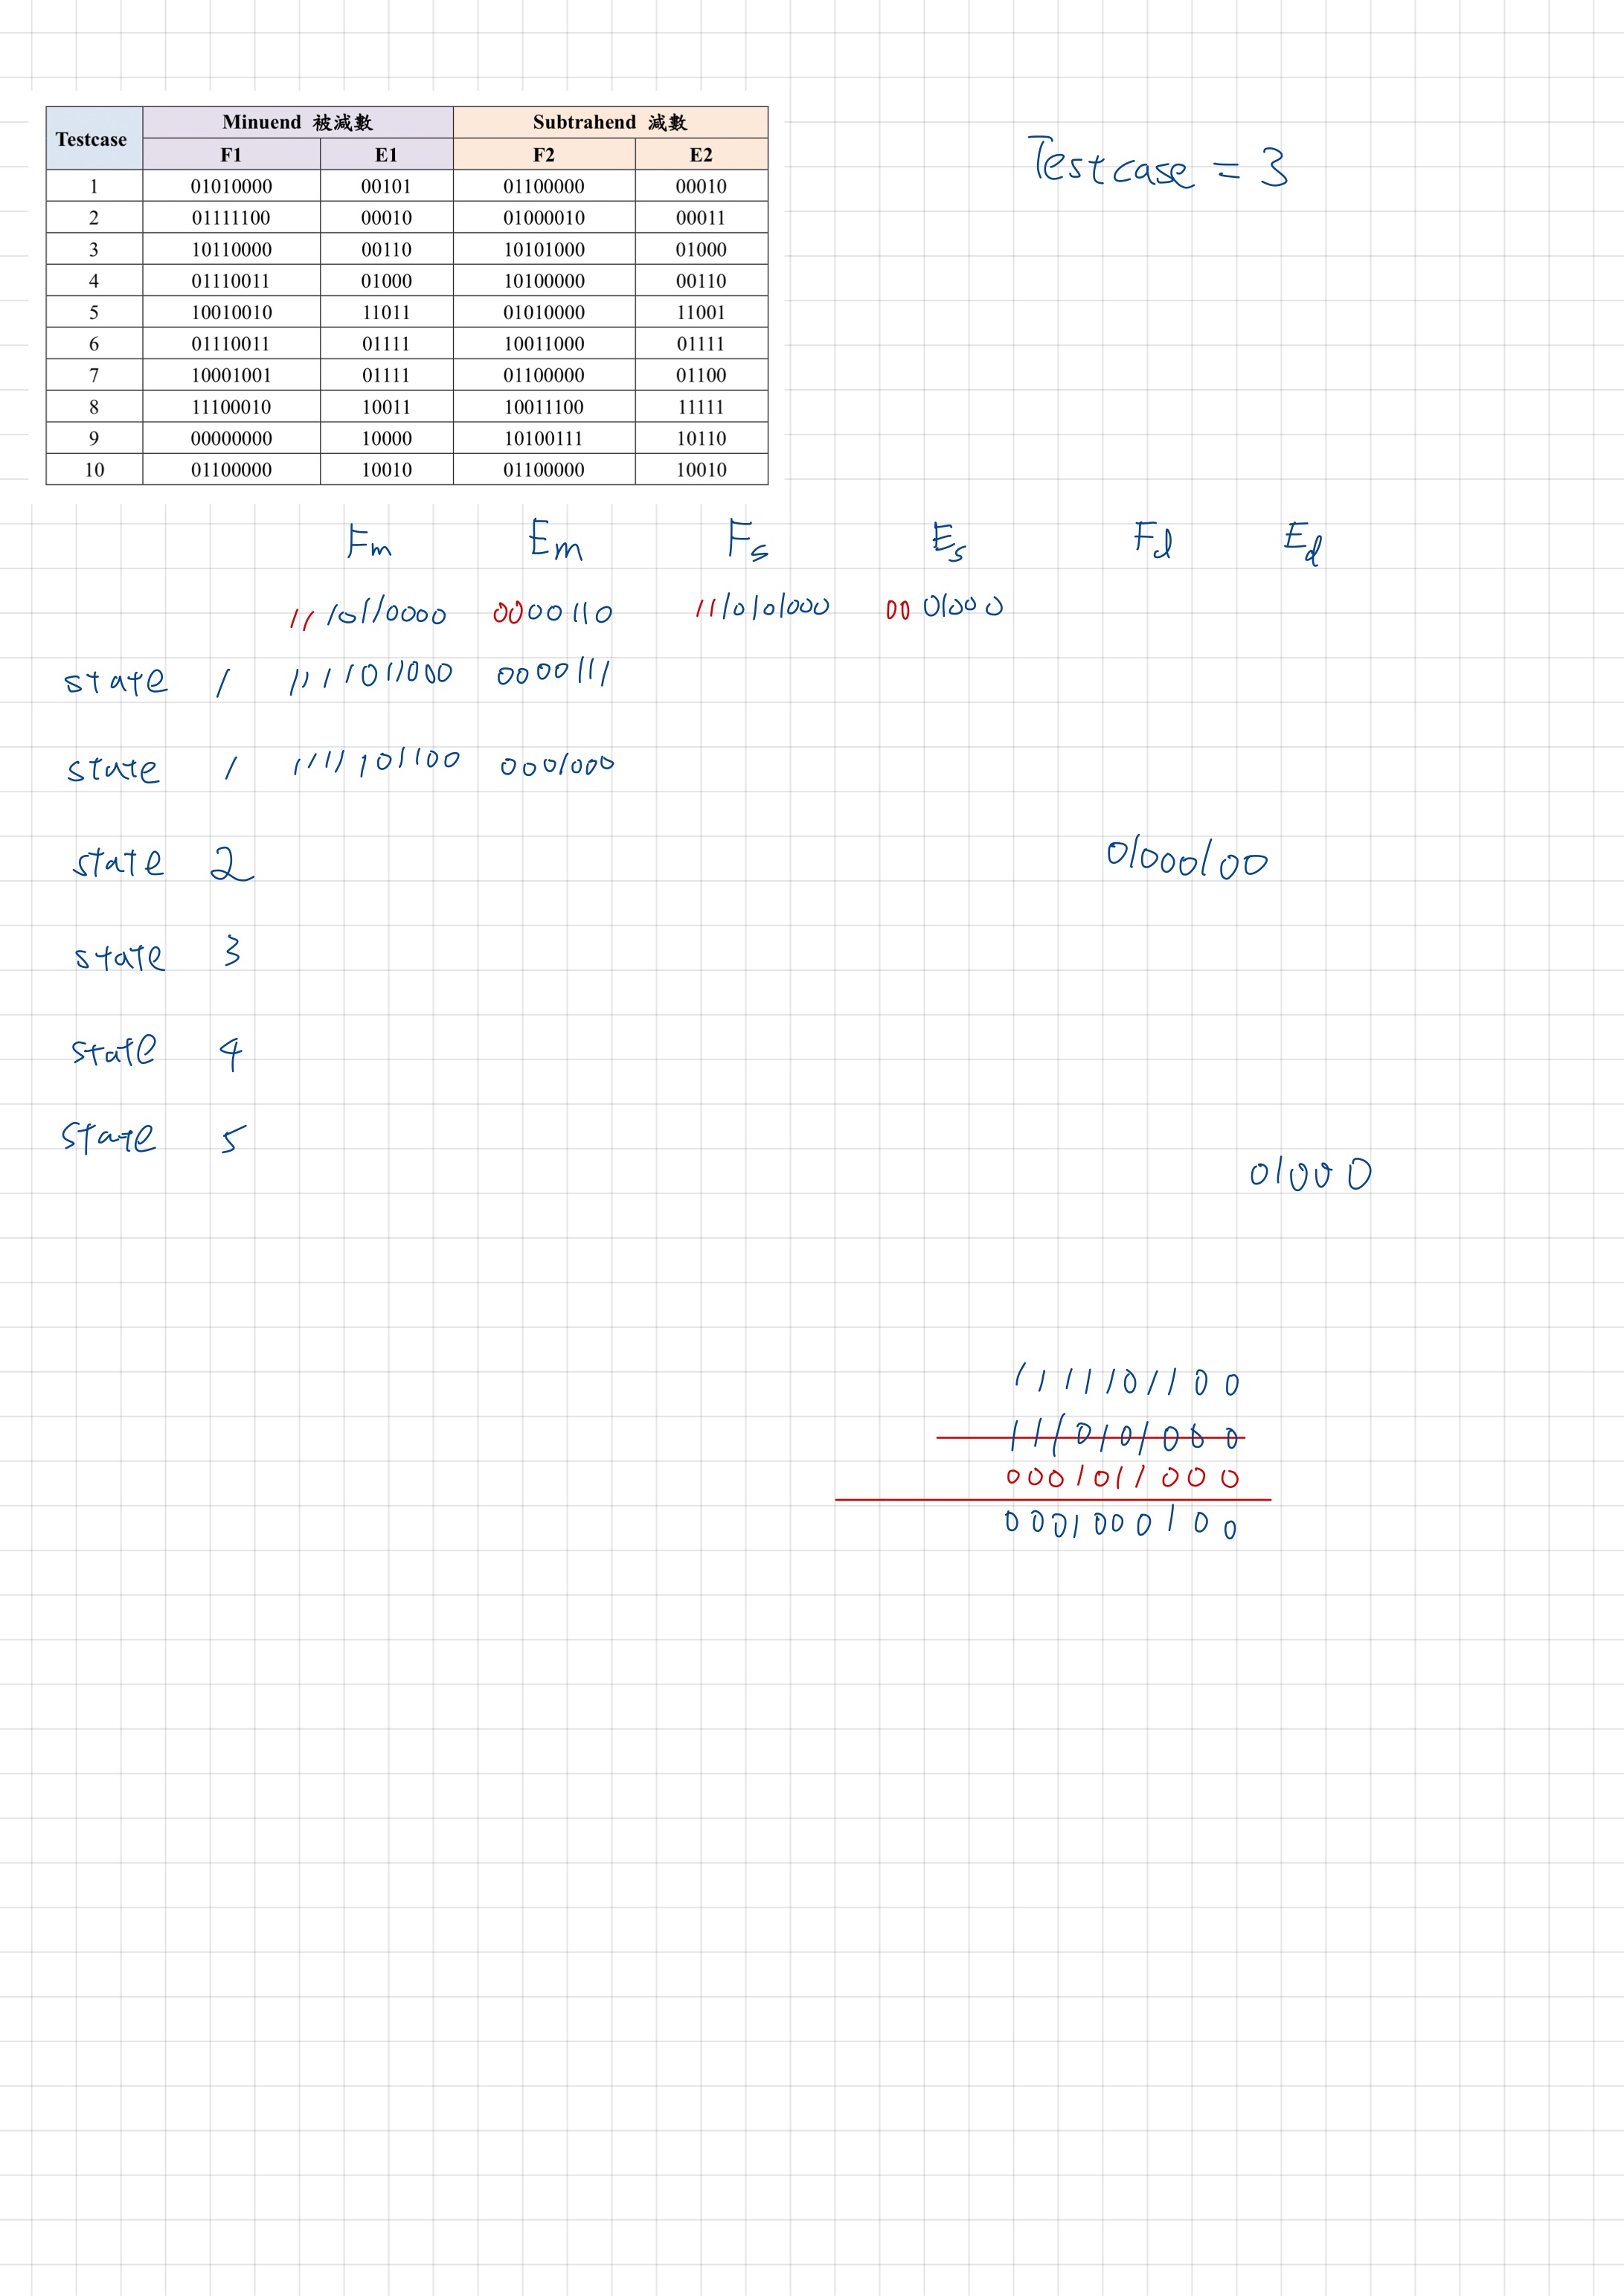 Testcase Minuend 被減數 Subtrahend 減數
F1 E1 F2 E2
1 01010000 00101 01100000 00010
2 01111100 00010 01000010 00011
3 10110000 00110 10101000 01000
4 01110011 01000 10100000 00110
5 10010010 11011 01010000 11001
6 01110011 01111 10011000 01111
7 10001001 01111 01100000 01100
8 11100010 10011 10011100 11111
9 00000000 10000 10100111 10110
10 01100000 10010 01100000 10010
Testcase = 3
Fm Em Fs Es Fd Ed
1110110000 0000110 1110101000 0001000
state 1 1111011000 0000111
state 1 1111101100 0001000
state 2 01000100
state 3
state 4
state 5
01000
1111101100
1110101000
0001011000
0001000100